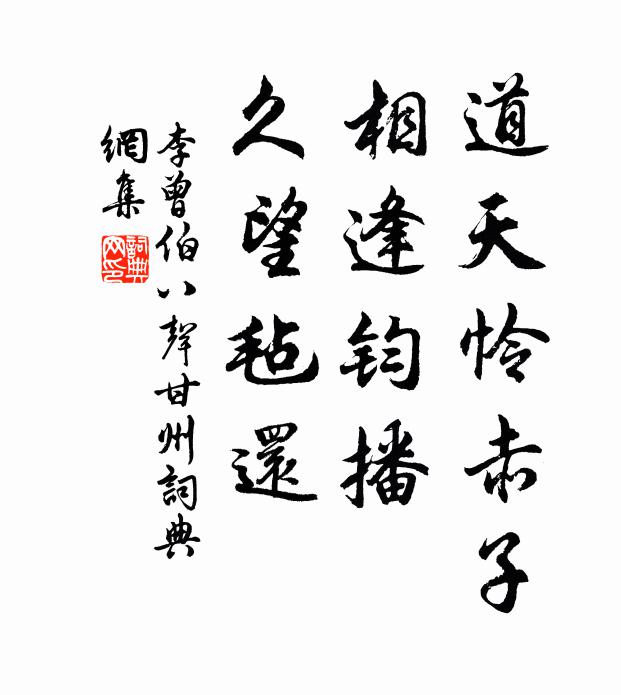 道天怜赤子
相逢钧播
久望毡還
李曾伯八聲甘州詞典
網集
詞典
网印